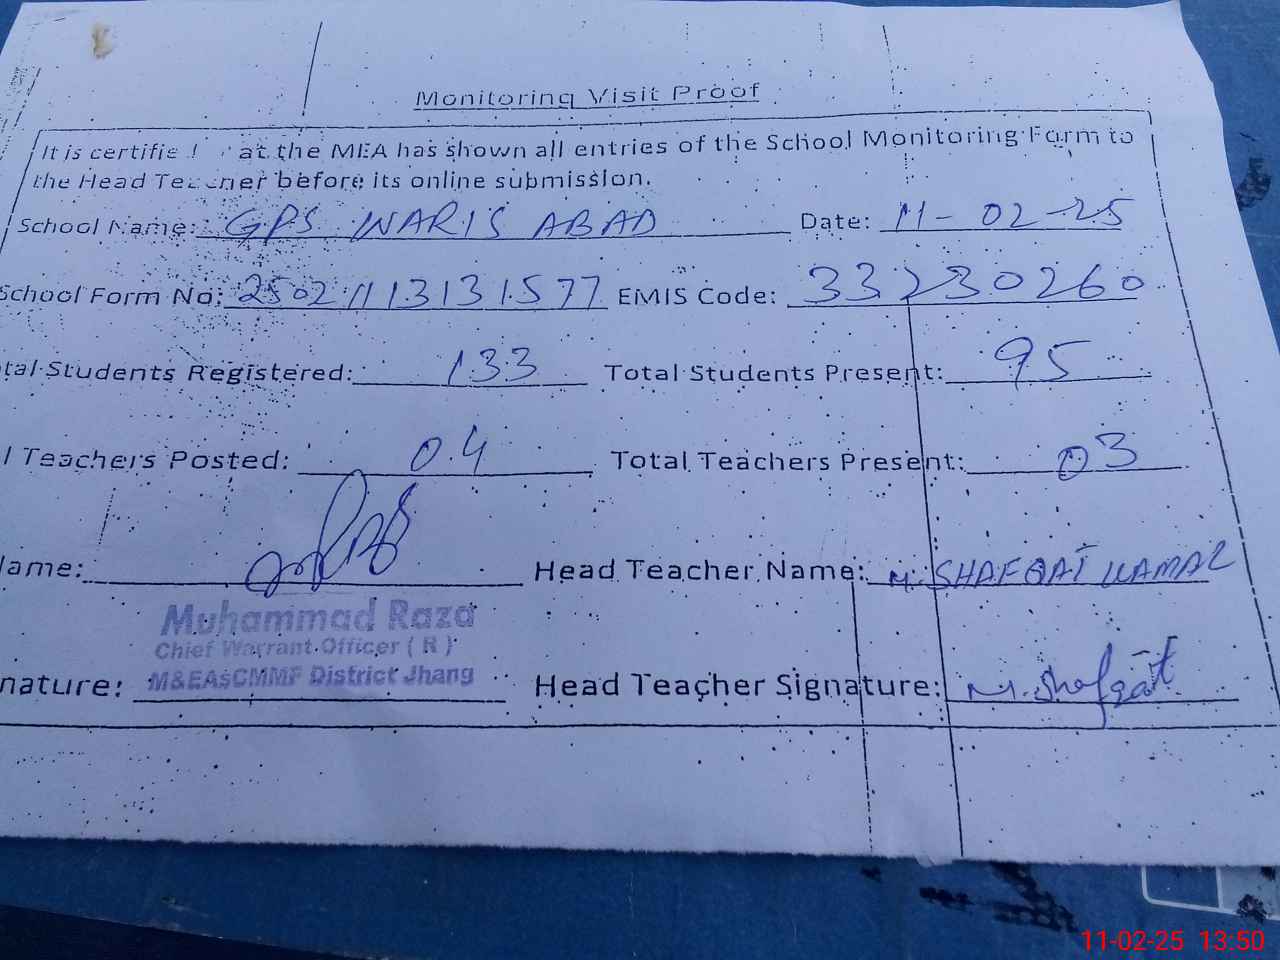 Monitoring Visit Proof
It is certifie at the MEA has shown all entries of the School Monitoring Form to
the Head Teacher before its online submission.
School Name: GPS WARIS ABAD Date: 11-02-25
School Form No: 25021113131577 EMIS Code: 33230260
tal Students Registered: 133 Total Students Present: 95
l Teachers Posted: 04 Total Teachers Present: 03
ame: Head Teacher Name: M. SHAFQAT KAMAL
Muhammad Raza
Chief Warrant Officer ( R )
M&EAsCMMF District Jhang
nature: Head Teacher Signature: M. Shafqat
11-02-25 13:50